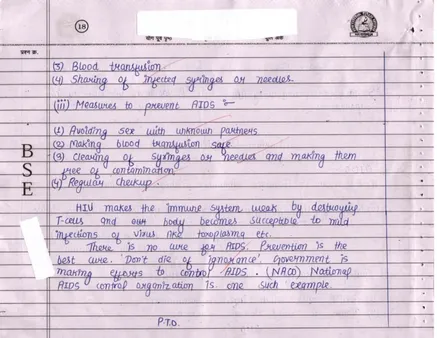 18
प्रश्न क्र.
(3) Blood transfusion
(4) Sharing of infected syringes or needles.
(iii) Measures to prevent AIDS :-
(1) Avoiding sex with unknown partners
(2) Making blood transfusion safe
(3) Clearing of syringes or needles and making them
free of contamination
(4) Regular checkup.
BSE
HIV makes the immune system weak by destroying
T-cells and our body becomes susceptible to mild
infections of virus like toxoplasma etc.
There is no cure for AIDS. Prevention is the
best cure. 'Don't die of ignorance'. Government is
making efforts to control AIDS. (NACO) National
AIDS control organization is one such example.
P.T.O.